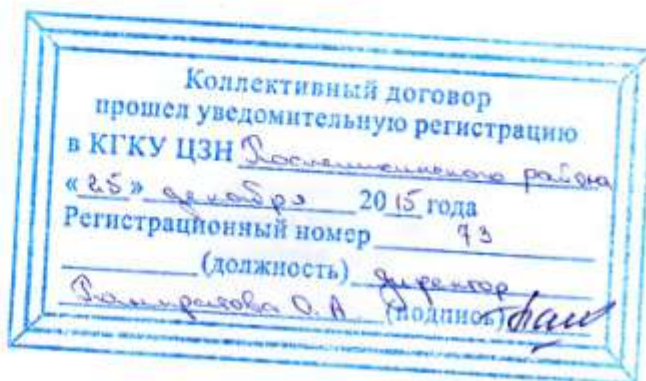 Коллективный договор
прошел уведомительную регистрацию
в КГКУ ЦЗН района
«25» декабря 2015 года
Регистрационный номер 73
(должность) директор
О. А. (подпись)